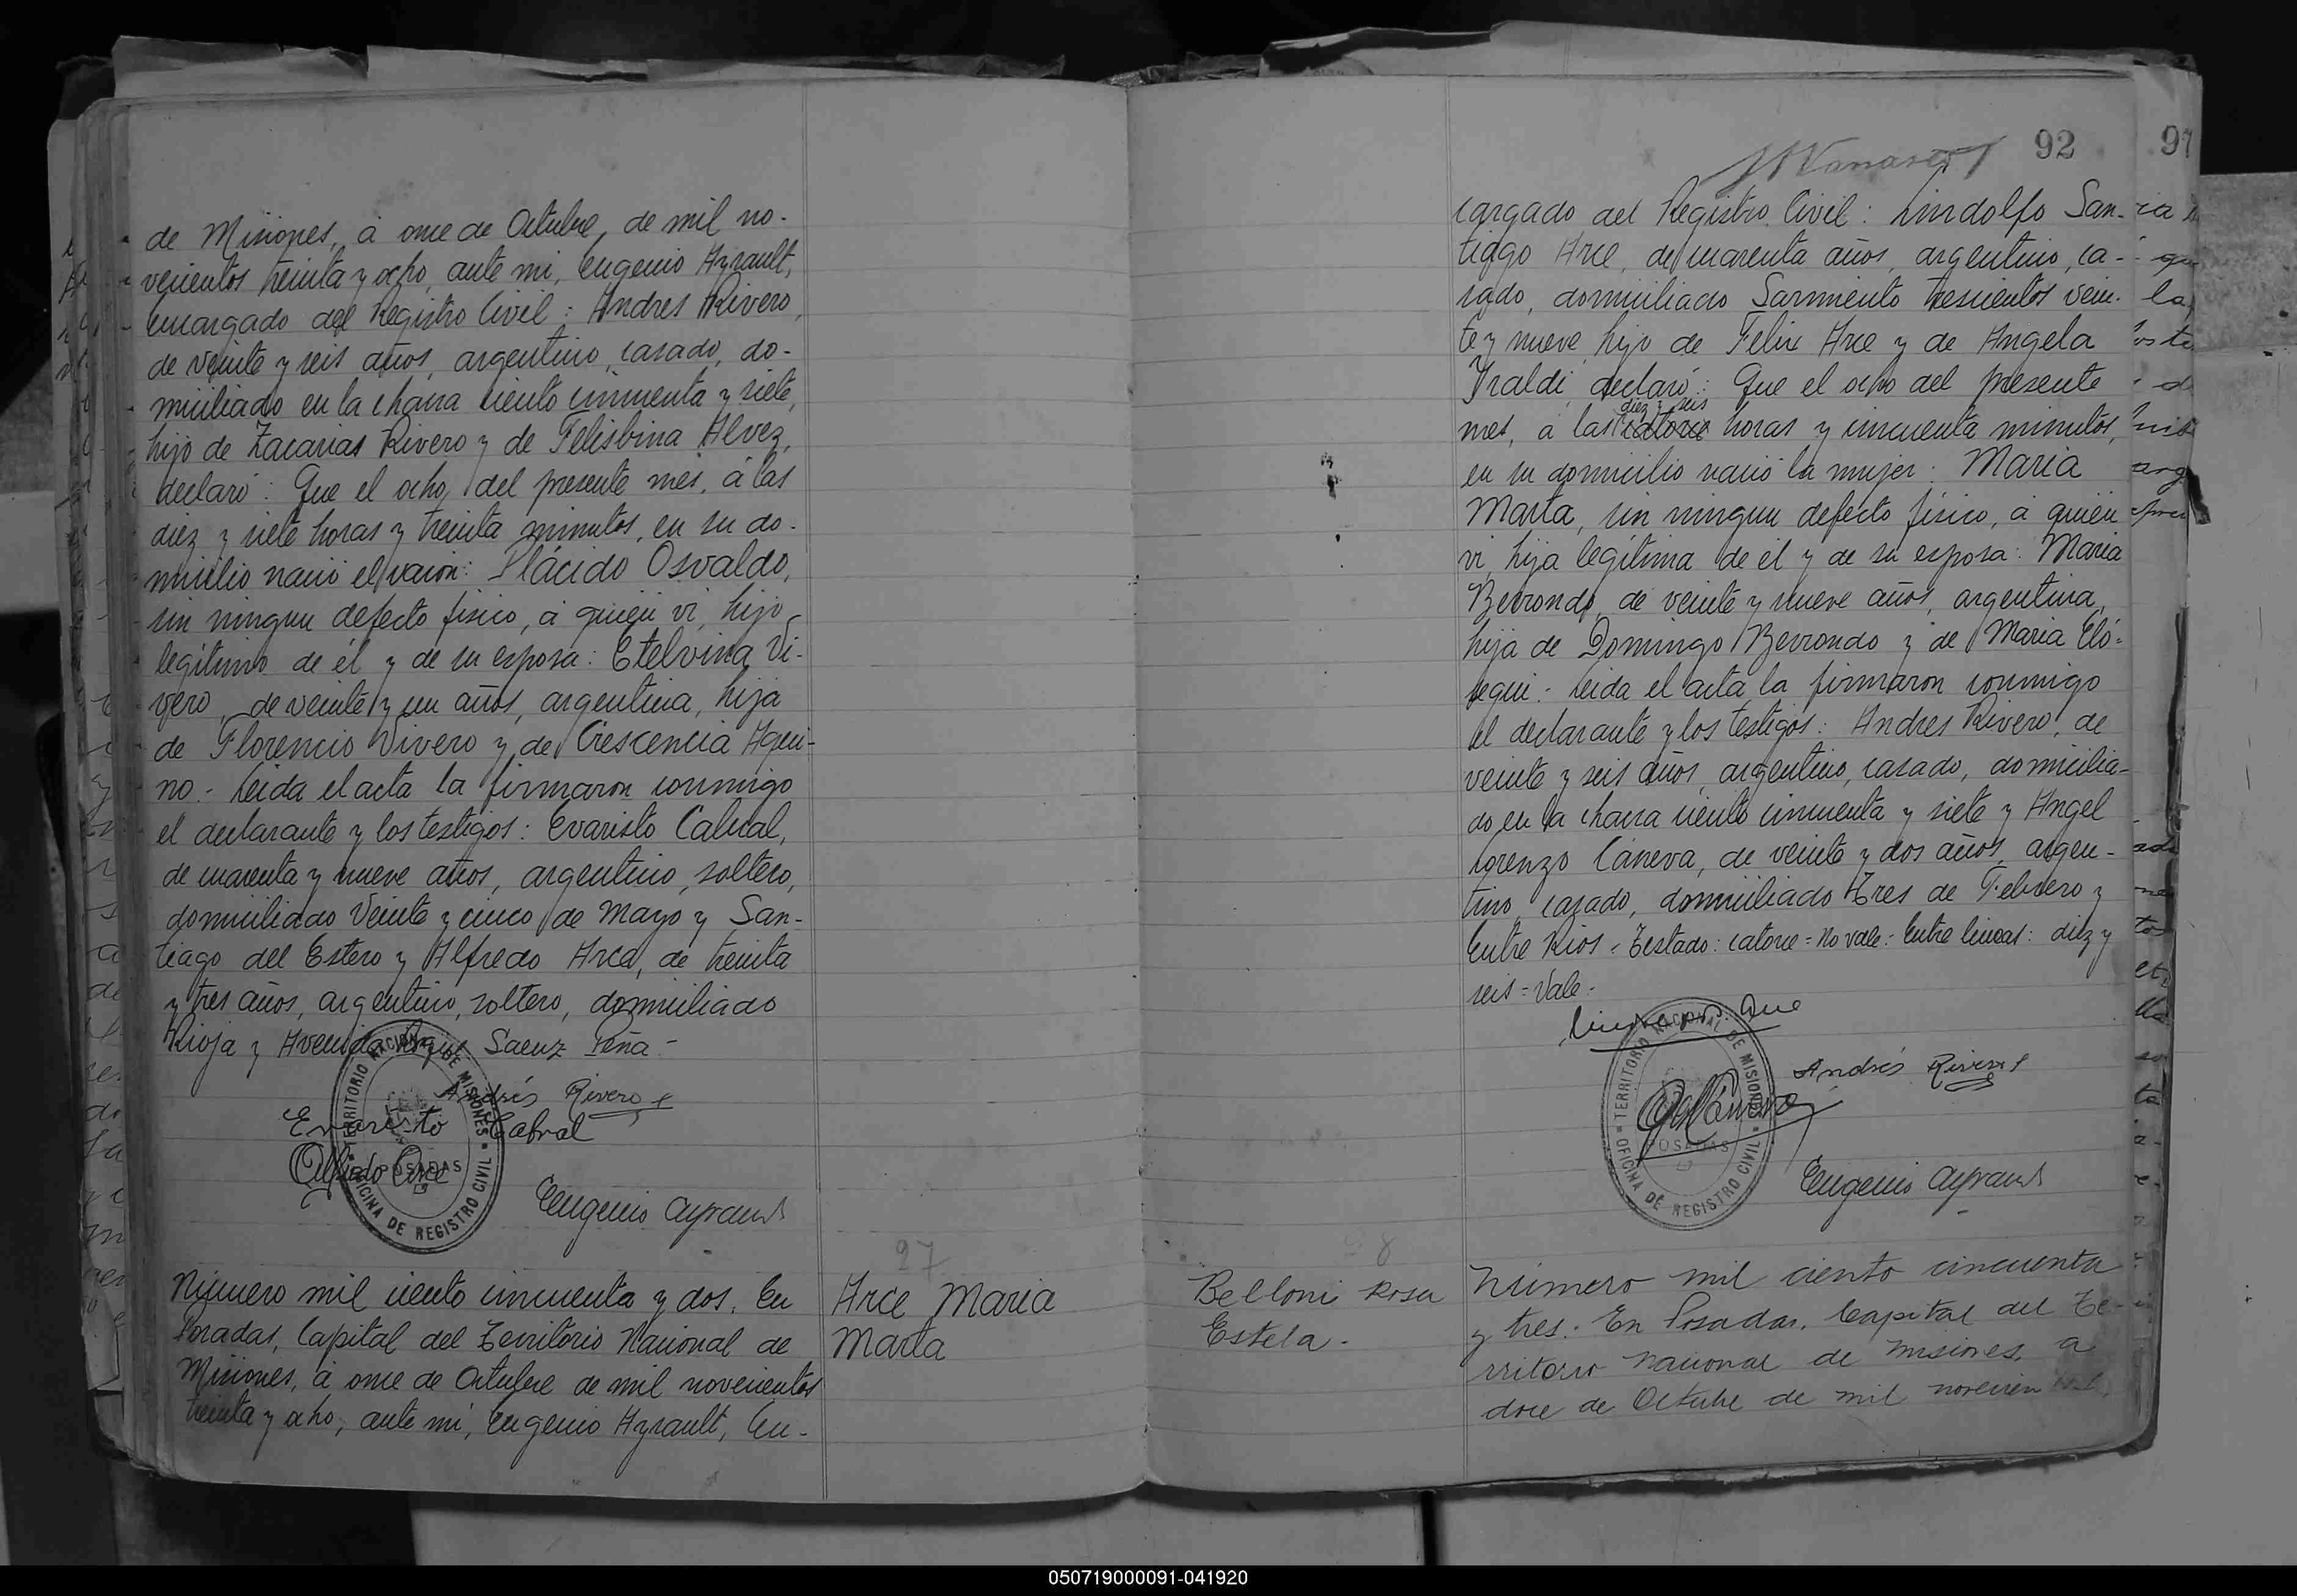 de Misiones, á once de Octubre, de mil no-
vecientos treinta y ocho, ante mi, Eugenio Ayrault,
encargado del Registro Civil: Andres Rivero,
de veinte y seis años, argentino, casado, do-
miciliado en la chacra ciento cincuenta y siete,
hijo de Zacarias Rivero y de Felisbina Alvez,
declaró: Que el ocho, del presente mes, á las
diez y siete horas y treinta minutos, en su do-
micilio nació el varon: Plácido Osvaldo,
sin ningun defecto fisico, á quien vi, hijo
legitimo de él y de su esposa: Etelvina Vi-
vero, de veinte y un años, argentina, hija
de Florencio Vivero y de Crescencia Aqui-
no.- Leida el acta la firmaron conmigo
el declarante y los testigos: Evaristo Cabral,
de cuarenta y nueve años, argentino, soltero,
domiciliado Veinte y cinco de Mayo y San-
tiago del Estero y Alfredo Arce, de treinta
y tres años, argentino, soltero, domiciliado
Rioja y Avenida Roque Saenz Peña-
Andrés Rivero
Evaristo Cabral
Alfredo Arce
TERRITORIO NACIONAL DE MISIONES
POSADAS
OFICINA DE REGISTRO CIVIL
Eugenio Ayrault
27
Número mil ciento cincuenta y dos. En
Posadas, Capital del Territorio Nacional de
Misiones, á once de Octubre de mil novecientos
treinta y ocho, ante mi, Eugenio Ayrault, En-
Arce Maria
Marta
92
97
cargado del Registro Civil: Lindolfo San-
tiago Arce, de cuarenta años, argentino, ca-
sado, domiciliado Sarmiento trescientos vein-
te y nueve, hijo de Felix Arce y de Angela
Yraldi, declaró: Que el ocho del presente
diez y seis
mes, á las catorce horas y cincuenta minutos,
en su domicilio nació la mujer: Maria
Marta, sin ningun defecto fisico, á quien
vi, hija legitima de él y de su esposa: Maria
Berrondo, de veinte y nueve años, argentina,
hija de Domingo Berrondo y de Maria Eló-
segui.- Leida el acta la firmaron conmigo
el declarante y los testigos: Andres Rivero, de
veinte y seis años, argentino, casado, domicilia-
do en la chacra ciento cincuenta y siete y Angel
Lorenzo Cáneva, de veinte y dos años, argen-
tino, casado, domiciliado Tres de Febrero y
Entre Rios.- Testado: catorce = No vale: Entre lineas: diez y
seis = Vale-
Andrés Rivero
TERRITORIO NACIONAL DE MISIONES
POSADAS
OFICINA DE REGISTRO CIVIL
Eugenio Ayrault
8
Belloni Rosa
Estela.-
Número mil ciento cincuenta
y tres. En Posadas, Capital del Te-
rritorio nacional de Misiones, a
doce de Octubre de mil novecientos
050719000091-041920